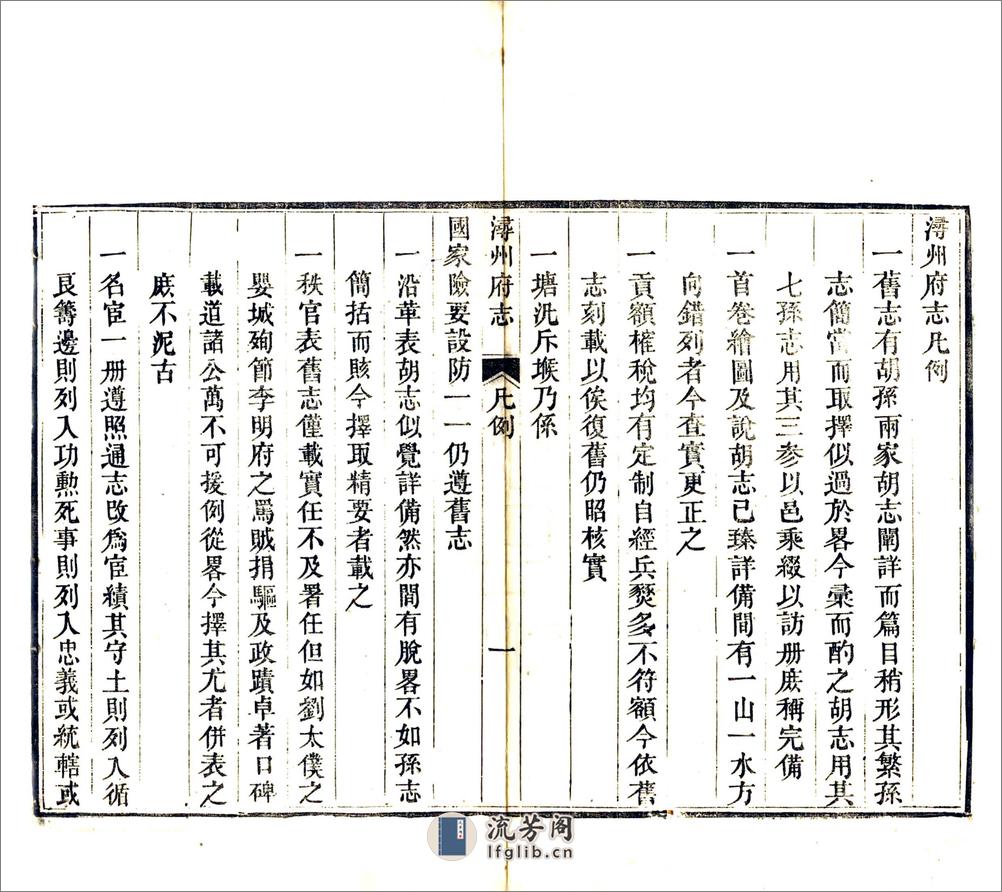 潯州府志凡例
一舊志有胡孫兩家胡志闡詳而篇目稍形其繁孫
志簡當而取擇似過於畧今彚而酌之胡志用其
七孫志用其三參以邑乘綴以訪册庶稱完備
一首卷繪圖及說胡志已臻詳備間有一山一水方
向錯列者今查實更正之
一貢額榷稅均有定制自經兵燹多不符額今依舊
志刻載以俟復舊仍昭核實
一塘汛斥堠乃係
潯州府志 凡例 一
國家險要設防一一仍遵舊志
一沿革表胡志似覺詳備然亦間有脫畧不如孫志
簡括而賅今擇取精要者載之
一秩官表舊志僅載實任不及署任但如劉太僕之
嬰城殉節李明府之罵賊捐驅及政蹟卓著口碑
載道諸公萬不可援例從畧今擇其尤者併表之
庶不泥古
一名宦一册遵照通志改爲宦績其守土則列入循
良籌邊則列入功勲死事則列入忠義或統轄或
流芳阁
lfglib.cn